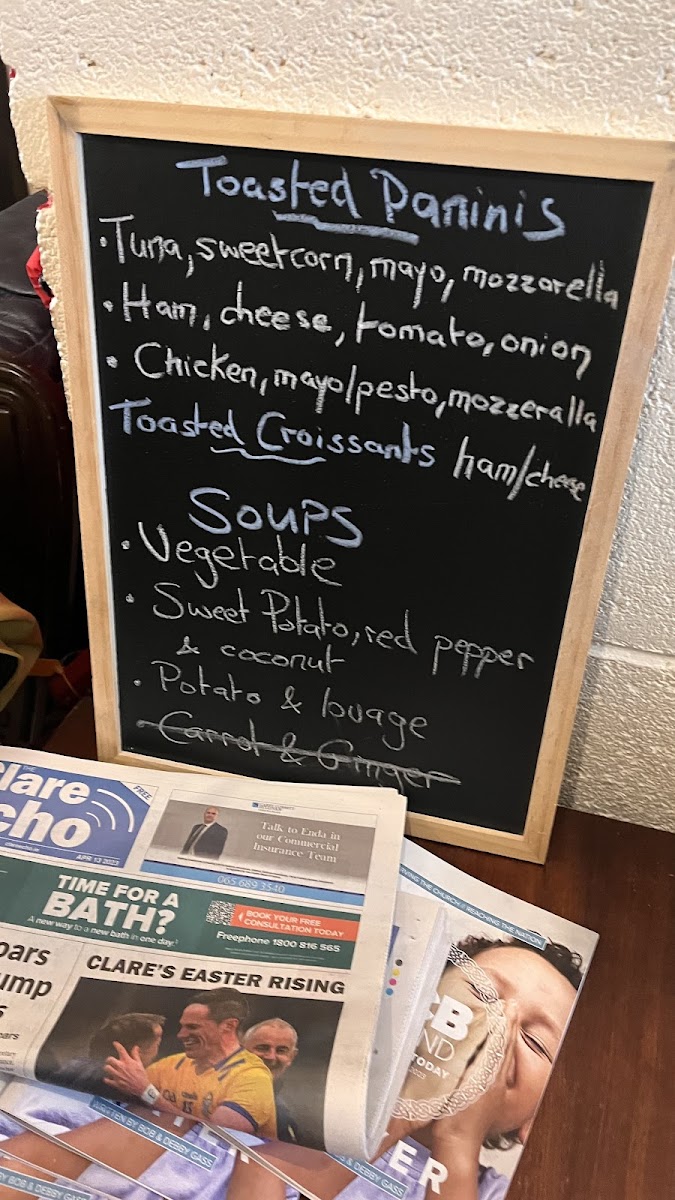 Toasted Paninis
• Tuna, sweetcorn, mayo, mozzarella
• Ham, cheese, tomato, onion
• Chicken, mayo/pesto, mozzeralla
Toasted Croissants ham/cheese
Soups
• Vegetable
• Sweet Potato, red pepper
& coconut
• Potato & lovage
Carrot & Ginger
THE
Clare
Echo
FREE
clareecho.ie
APR 13 2023
Talk to Enda in
our Commercial
Insurance Team
065 689 3540
TIME FOR A
BATH?
A new way to a new bath in one day.
BOOK YOUR FREE
CONSULTATION TODAY
Freephone 1800 816 565
CLARE'S EASTER RISING
SERVING THE CHURCH // REACHING THE NATION
TODAY
2023
WRITTEN BY BOB & DEBBY GASS
BOB & DEBBY GASS